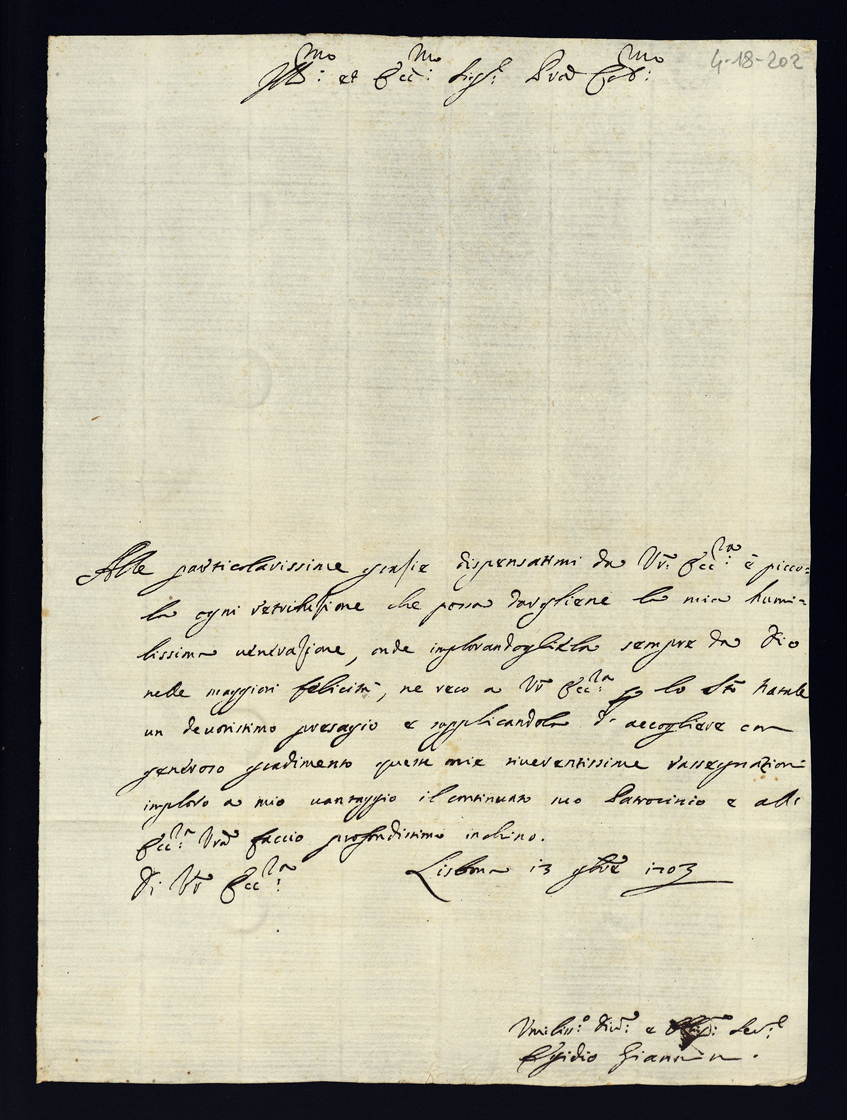 4-18-202
Ill.mo et Ecc.mo Sig.r Pron Col.mo
Alle particolarissime grazie dispensatimi da Vr̃. Ecc.za è picco=
la ogni retribuzione che possa dargliene la mia humi=
lissima venerazione, onde implorandogliela sempre da Dio
nelle maggiori felicità, ne reco a Vr̃ Ecc.za p lo Sto Natale
un devotissimo presagio e supplicandola di accogliere con
generoso gradimento queste mie riverentissime rassegnazioni
imploro a mio vantaggio il continuato suo Patrocinio e all'
Ecc.za Vra faccio profondissimo inchino.
Di Vr̃ Ecc.za Lisbona 13 9bre 1703
Umiliss.o Div.o e Ser.e
Egidio Giannin